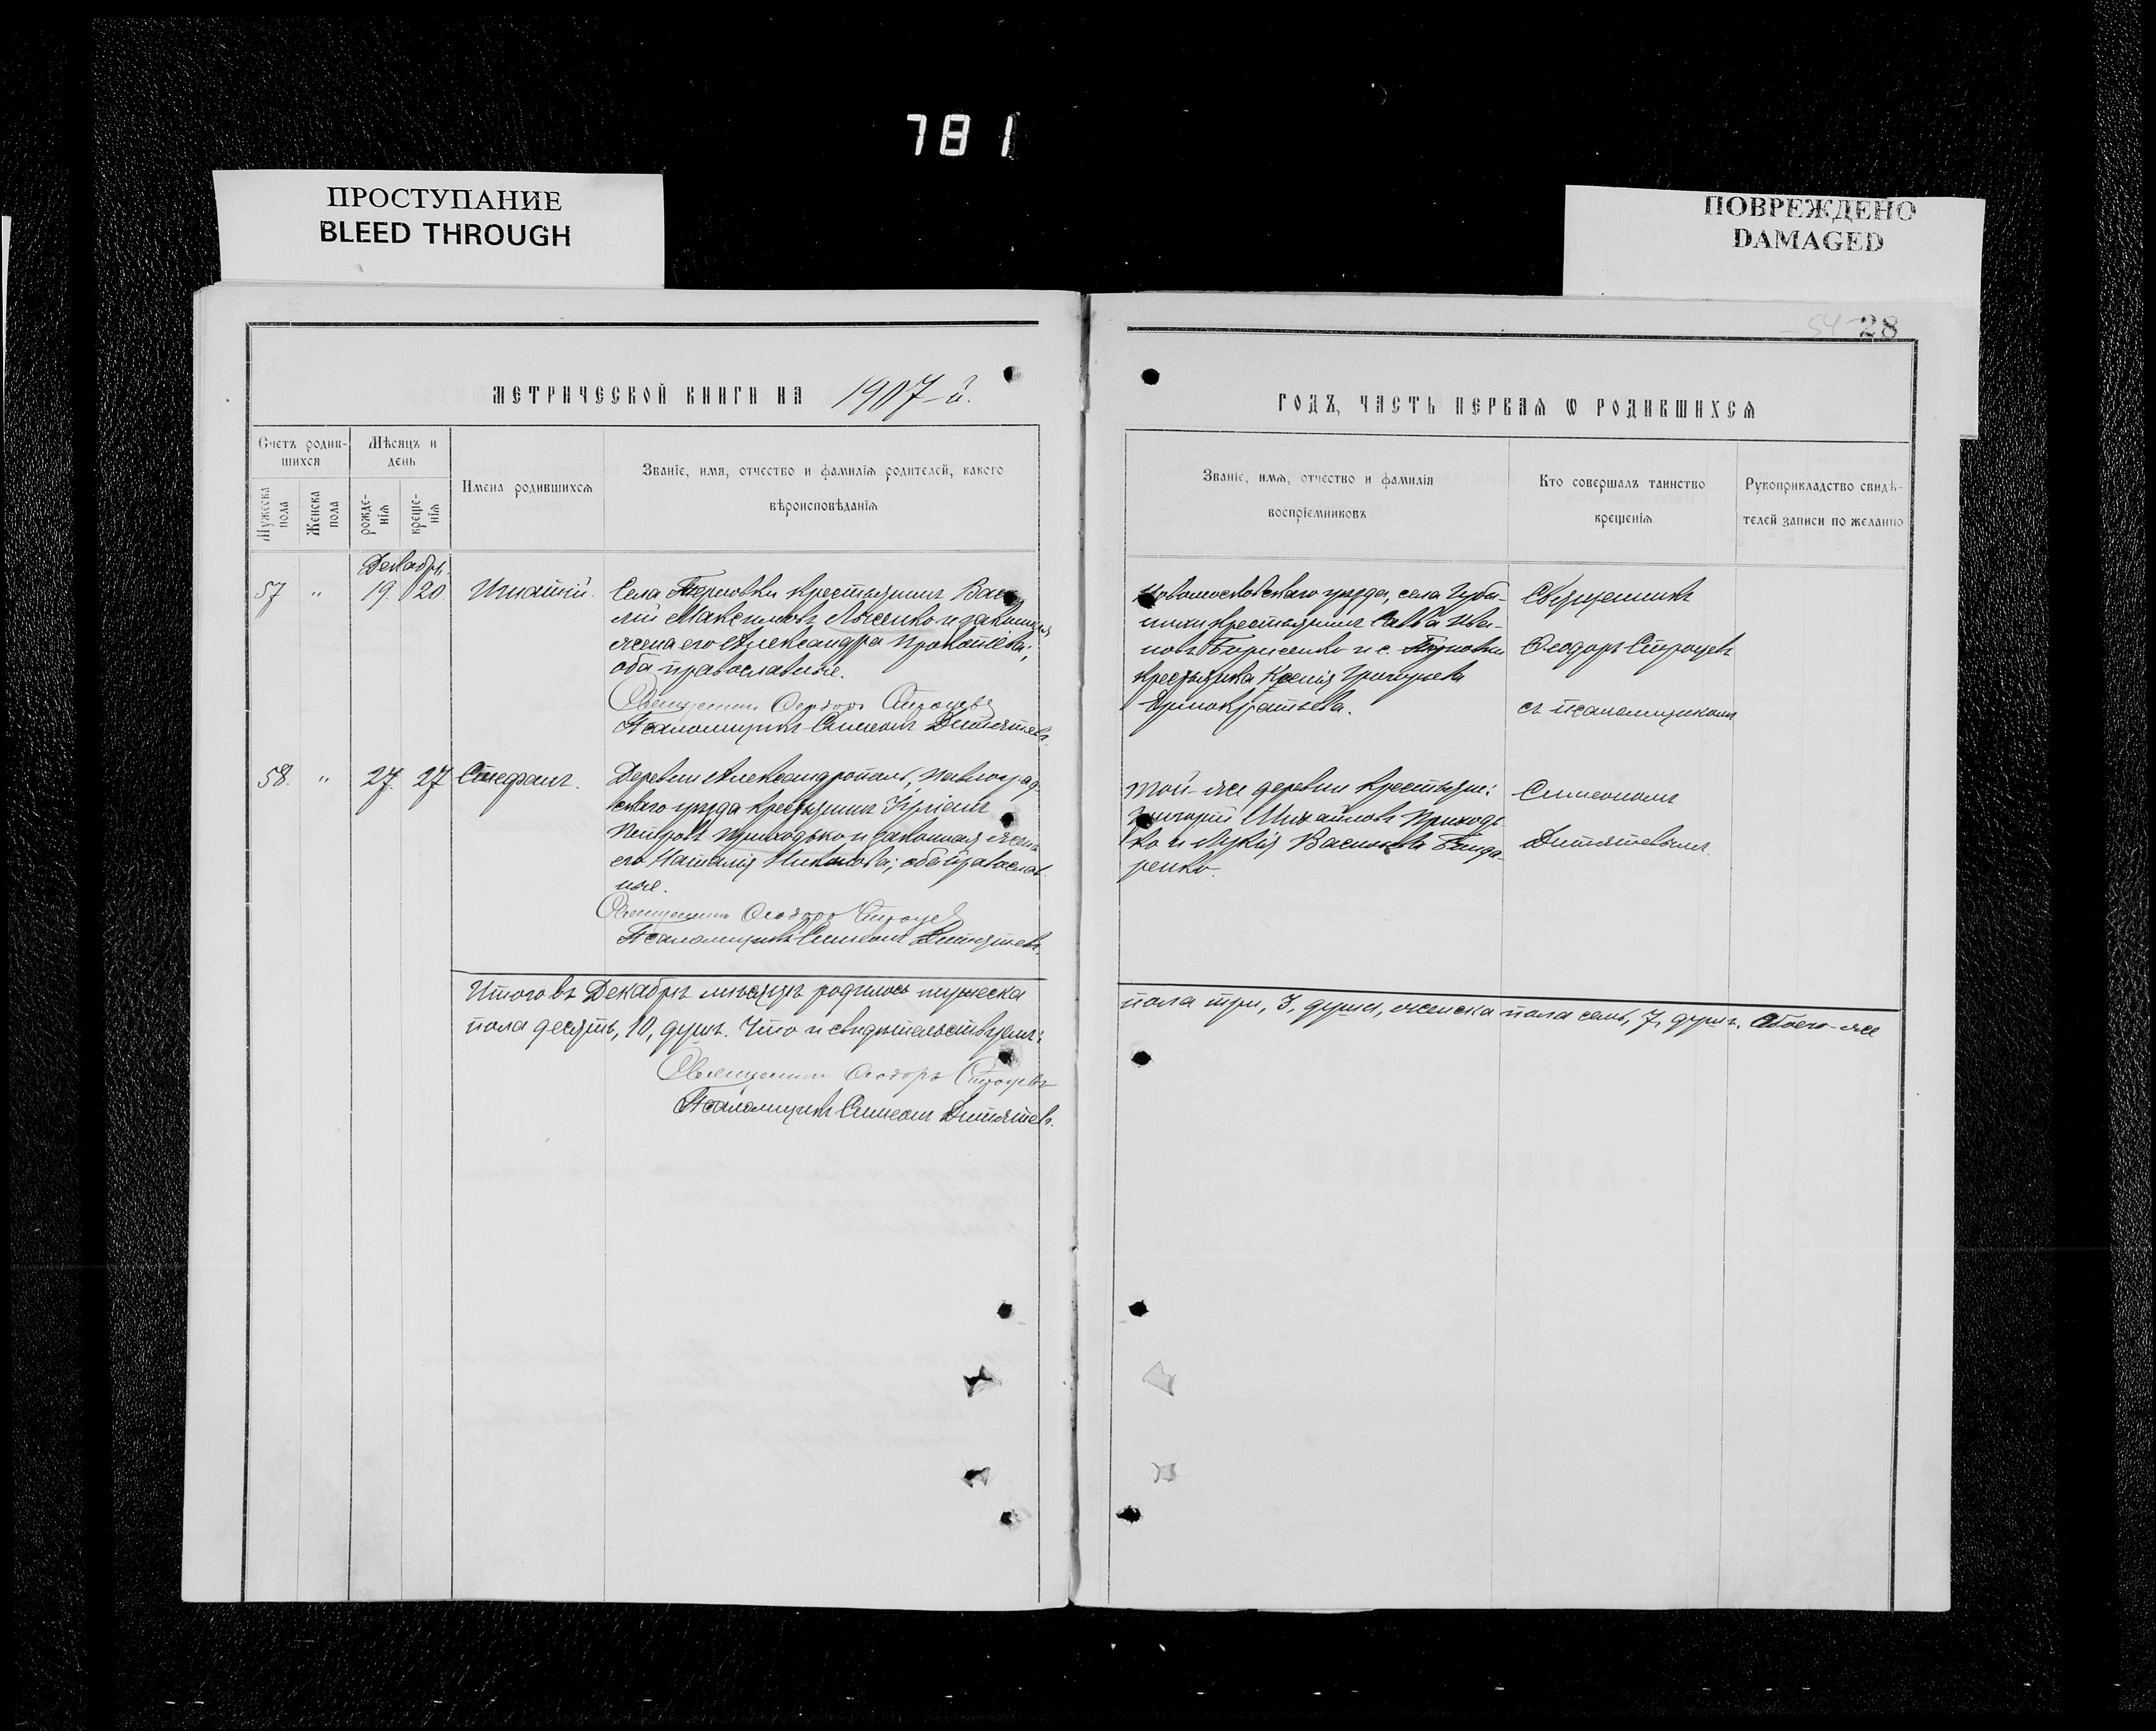 781
ПРОСТУПАНИЕ
BLEED THROUGH
ПОВРЕЖДЕНО
DAMAGED
54 28
МЕТРИЧЕСКОЙ КНИГИ НА 1907-й.
ГОДЪ, ЧАСТЬ ПЕРВАЯ Ѡ РОДИВШИХСЯ
Счетъ родив-
шихся
Мужеска пола
Женска пола
Мѣсяцъ и
день
рожде-
нія
креще-
нія
Имена родившихся
Званіе, имя, отчество и фамилія родителей, какого
вѣроисповѣданія
Званіе, имя, отчество и фамилія
воспріемниковъ
Кто совершалъ таинство
крещенія
Рукоприкладство свидѣ-
телей записи по желанію
Декабрь
57 " 19. 20. Игнатій.
Села Терновки крестьянинъ Васи-
лій Максимовъ Лысенко и законная
жена его Александра Прокопіева;
оба православные.
Священникъ Ѳеодоръ Строцевъ
Псаломщикъ Симеонъ Дитятевъ.
Новомосковскаго уѣзда, села Губи-
нихи крестьянинъ Савва Ива-
новъ Борисенко и с. Терновки
крестьянка Ксенія Григорьева
Священникъ
Ѳеодоръ Строцевъ
съ псаломщикомъ
58. " 27. 27 Стефанъ.
Деревни Александрополь, Павлоград-
скаго уѣзда крестьянинъ
Петровъ Приходько и законная жена
его Наталія; оба православ-
ные.
Священникъ Ѳеодоръ Строцевъ
Псаломщикъ Симеонъ Дитятевъ.
Той-же деревни крестьяне:
Григорій Михайловъ Приходь-
ко и Лукія Васильева Бонда-
ренко.
Симеономъ
Дитятевымъ.
Итого въ Декабрѣ мѣсяцѣ родилось мужеска
пола три, 3, души, женска пола семь, 7, душъ. Обоего-же
пола десять, 10, душъ. Что и свидѣтельствуемъ:
Священникъ Ѳеодоръ Строцевъ
Псаломщикъ Симеонъ Дитятевъ.